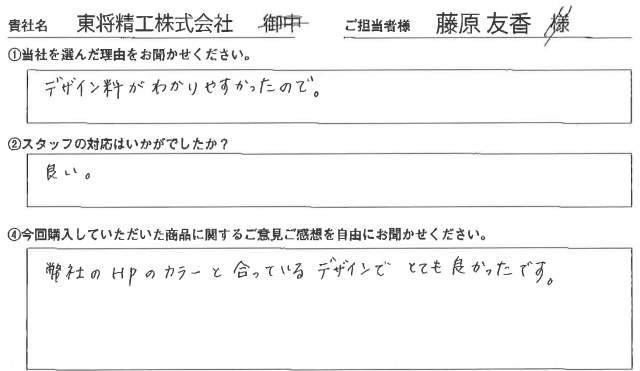 貴社名 東将精工株式会社 御中 ご担当者様 藤原 友香 様
①当社を選んだ理由をお聞かせください。
デザイン料がわかりやすかったので。
②スタッフの対応はいかがでしたか？
良い。
④今回購入していただいた商品に関するご意見ご感想を自由にお聞かせください。
弊社のHPのカラーと合っているデザインでとても良かったです。